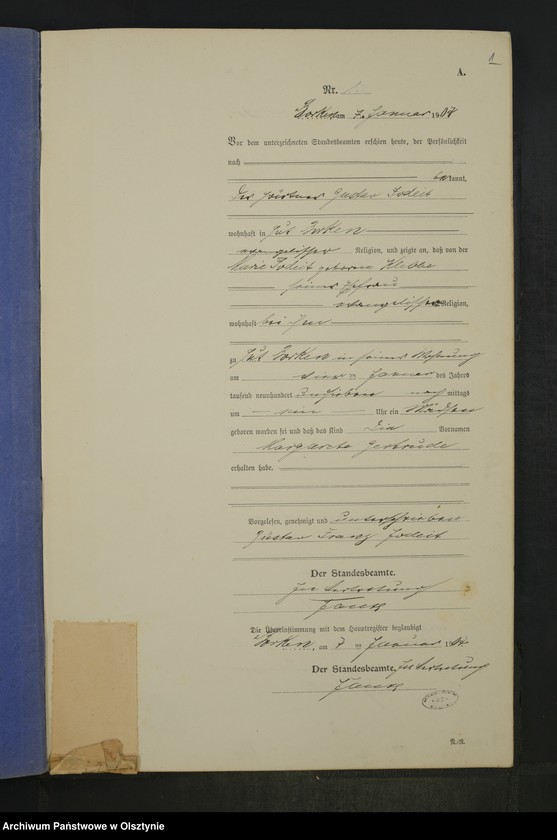 1
A.
Nr. 1.
Sorken am 7. Januar 1907
Vor dem unterzeichneten Standesbeamten erschien heute, der Persönlichkeit
nach
bekannt,
der Gärtner Gustav Jodeit
wohnhaft in Gut Sorken
evangelischer Religion, und zeigte an, daß von der
Marie Jodeit geborene
seiner Ehefrau
evangelischer Religion,
wohnhaft bei ihm
zu Gut Sorken in seiner Wohnung
am Januar des Jahres
tausend neunhundert und sieben nachmittags
um Uhr ein Mädchen
geboren worden sei und daß das Kind die Vornamen
Margarete Gertrude
erhalten habe.
Vorgelesen, genehmigt und unterschrieben
Gustav Franz Jodeit
Der Standesbeamte.
In Vertretung
Die Übereinstimmung mit dem Hauptregister beglaubigt
Sorken, am 7 ten Januar 1907
Der Standesbeamte, In Vertretung
Archiwum Państwowe w Olsztynie